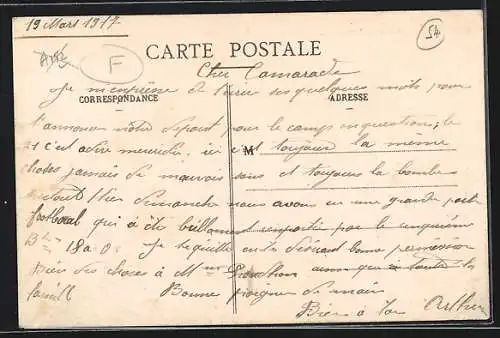 19 Mars 1917
54
F
CARTE POSTALE
Cher Camarade
Je m'empresse de quelques mots pour
CORRESPONDANCE
ADRESSE
t'annoncer notre départ pour le camp en question; le
21 c'est a dire mercredi. ici c'est toujour la même
M
choses jamais de mauvais et toujours la bombe
Hier Dimanche nous avons eu une grande
foot-ball qui à été brillament par le cinquième
18 a 0. Je te quitte en te bonne permission
Bien des choses à Mme ainsi que a toute la
famille Bonne poignée de main
Bien à toi Arthur